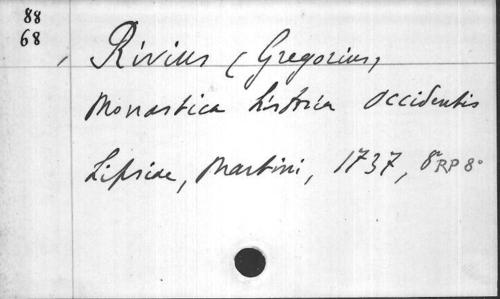 88
68
Rivius (Gregorius)
Monastica historia occidentis
Lipsiae, Martini, 1737, 8° RP 8°